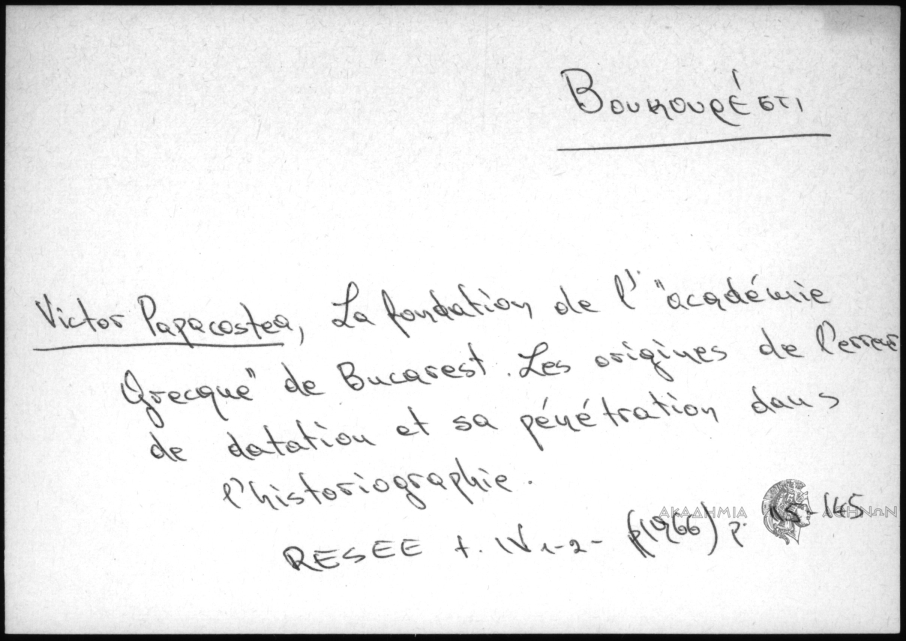 Βουκουρέστι
Victor Papacostea, La fondation de l' "académie
Grecque" de Bucarest. Les origines de l'erreur
de datation et sa pénétration dans
l'historiographie.
ΑΚΑΔΗΜΙΑ ΑΘΗΝΩΝ
RESEE t. IV 1-2- (1966) p. -145